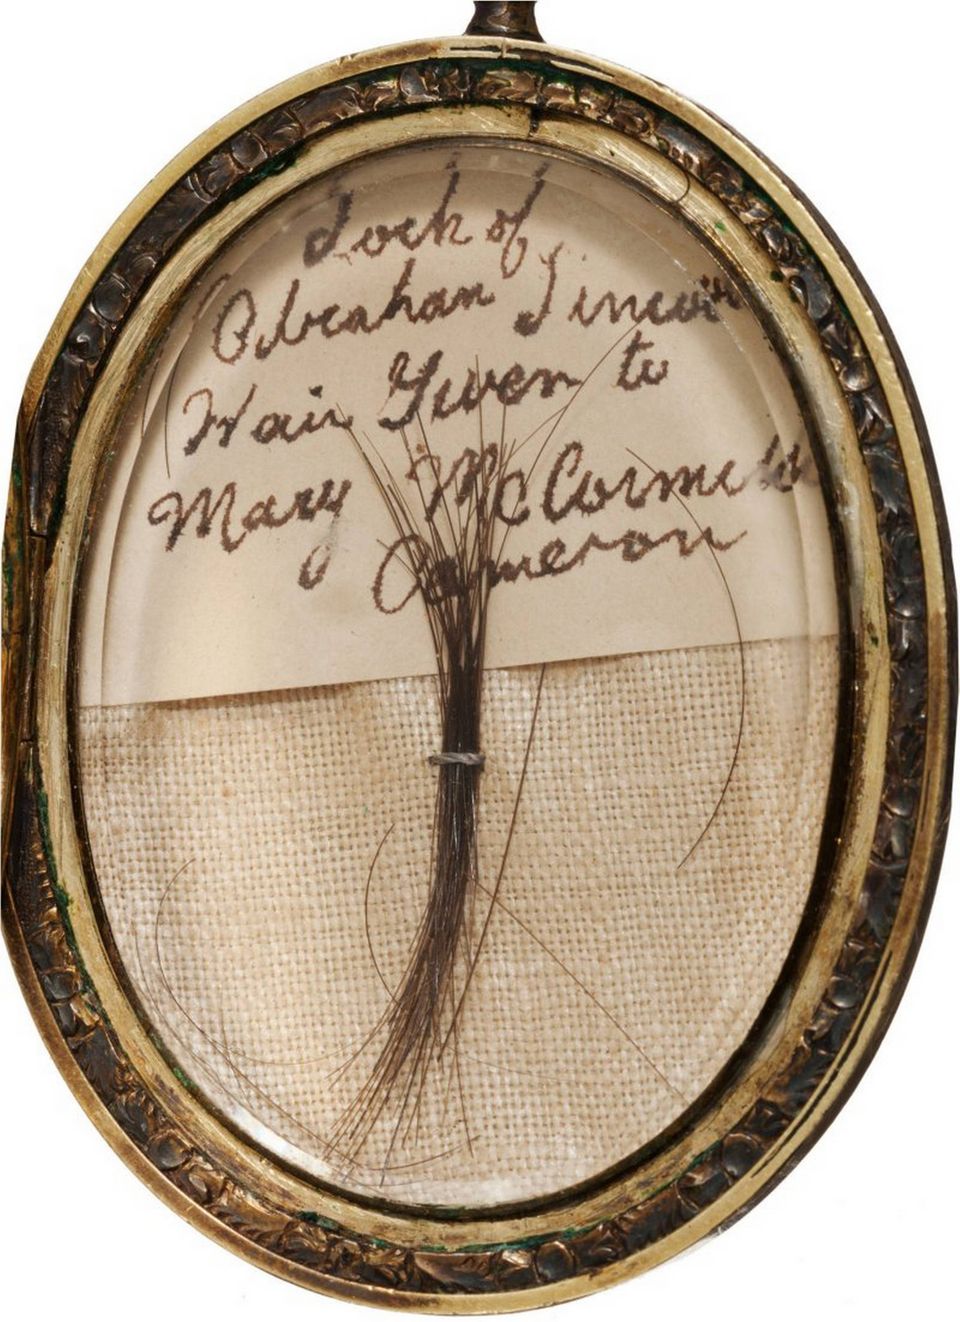 Lock of
Abrahan Lincoln
Hair Given to
Mary McCormick
Cameron